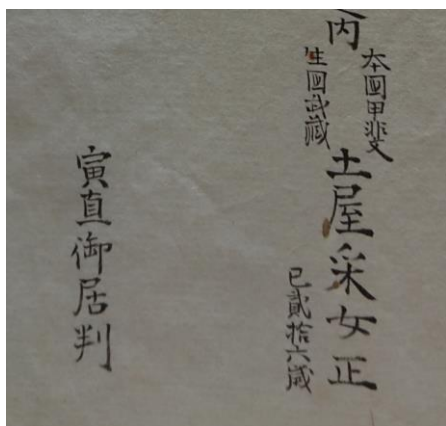 内
本國甲斐
生國武藏
土屋采女正
巳貳拾六歳
寅直御居判